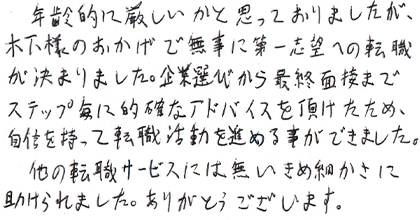 年齢的に厳しいかと思っておりましたが、
木下様のおかげで無事に第一志望への転職
が決まりました。企業選びから最終面接まで
ステップ毎に的確なアドバイスを頂けたため、
自信を持って転職活動を進める事ができました。
他の転職サービスには無いきめ細かさに
助けられました。ありがとうございます。